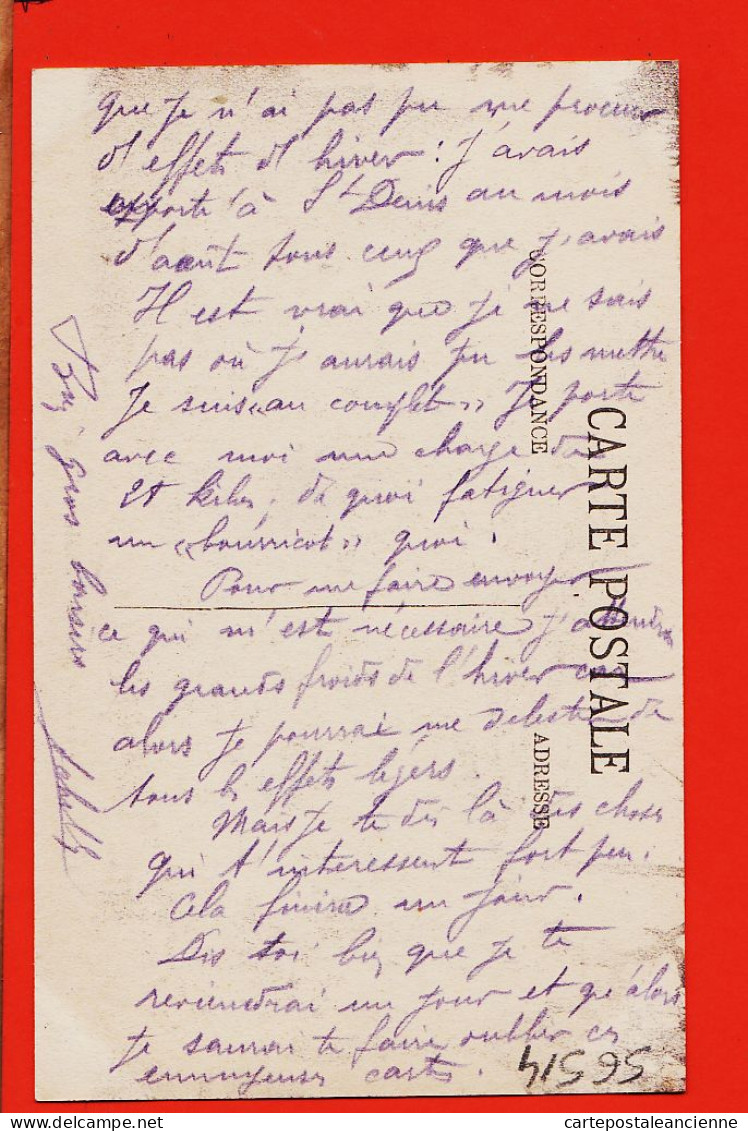 que je n'ai pas pu me procurer
d'effets d'hiver : J'avais
apporté à St Denis au mois
d'août tous ceux que j'avais
Il est vrai que je ne sais
pas où j'aurais pu les mettre
Je suis "au complet" Je porte
avec moi une charge de
kilos, de quoi fatiguer
un "bourricot" quoi.
Pour me faire envoyer
ce qui m'est nécessaire j'attendrai
les grands froids de l'hiver car
alors je pourrai me délester de
tous les effets légers.
Mais je te dis là des choses
qui t'intéressent fort peu.
Cela finira un jour.
Dis toi bien que je te
reviendrai un jour et qu'alors
je saurai te faire oublier ces
ennuyeuses cartes.
gros baisers
CORRESPONDANCE
CARTE POSTALE
ADRESSE
56514
cartepostaleancienne